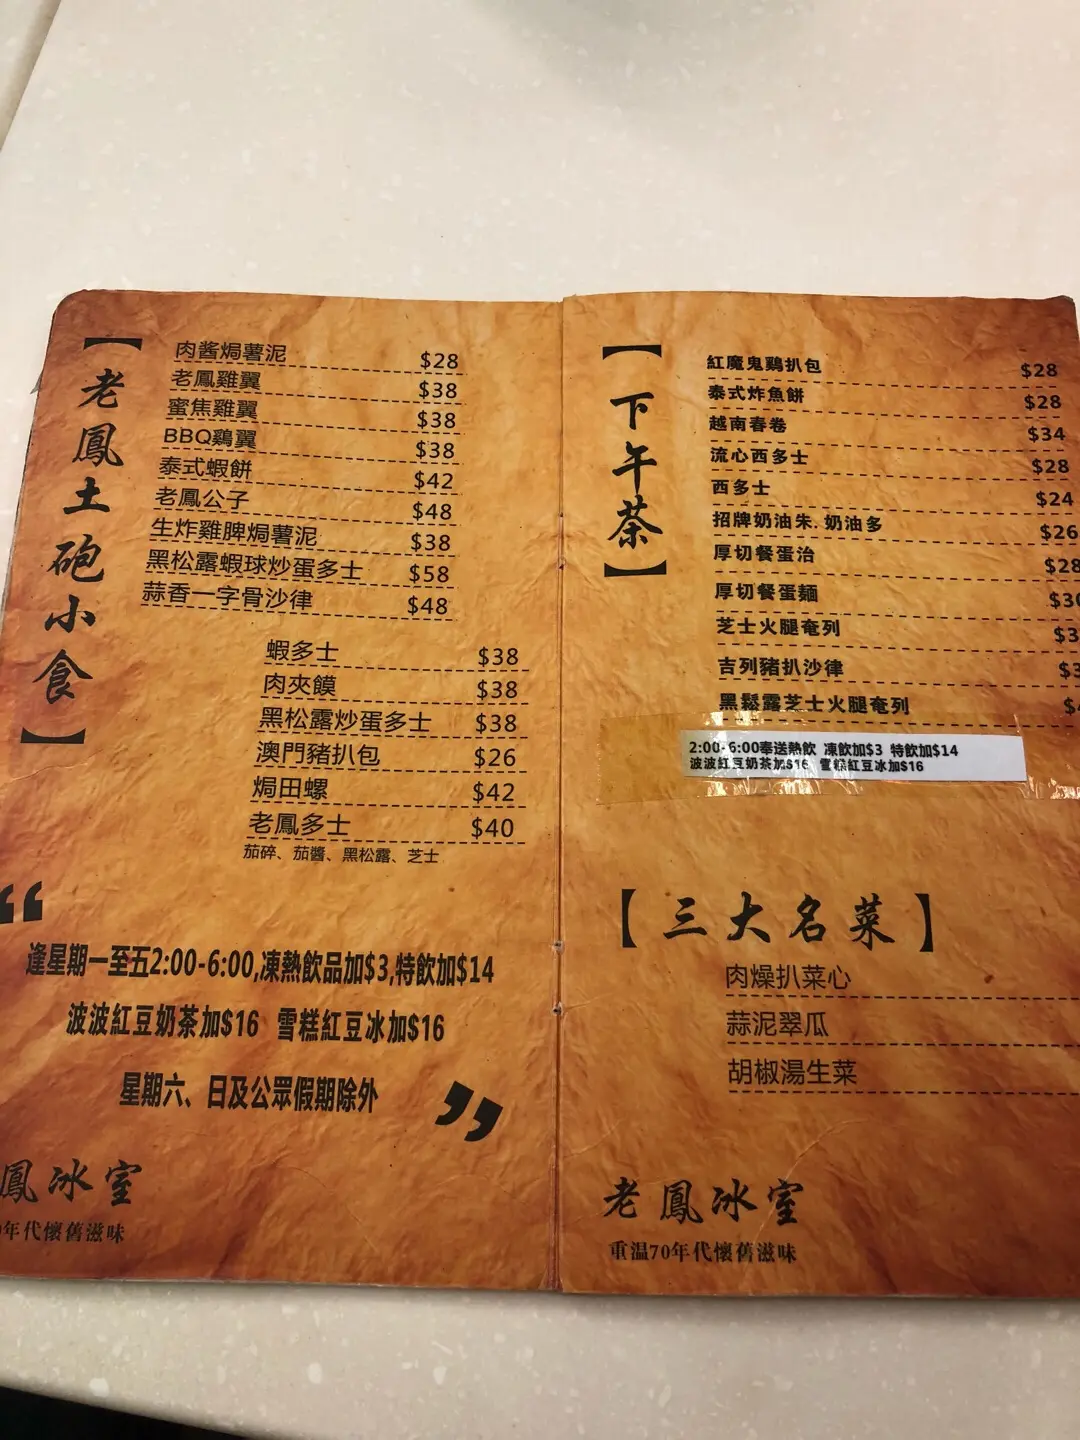 【老鳳士砲小食】
肉酱焗薯泥 $28
老鳳雞翼 $38
蜜焦雞翼 $38
BBQ鷄翼 $38
泰式蝦餅 $42
老鳳公子 $48
生炸雞脾焗薯泥 $38
黑松露蝦球炒蛋多士 $58
蒜香一字骨沙律 $48
蝦多士 $38
肉夾饃 $38
黑松露炒蛋多士 $38
澳門豬扒包 $26
焗田螺 $42
老鳳多士 $40
茄碎、茄醬、黑松露、芝士
“
逢星期一至五2:00-6:00,凍熱飲品加$3,特飲加$14
波波紅豆奶茶加$16 雪糕紅豆冰加$16
星期六、日及公眾假期除外
”
鳳冰室
年代懷舊滋味
【下午茶】
紅魔鬼鷄扒包 $28
泰式炸魚餅 $28
越南春卷 $34
流心西多士 $28
西多士 $24
招牌奶油朱、奶油多 $26
厚切餐蛋治 $28
厚切餐蛋麵 $30
芝士火腿奄列 $3
吉列豬扒沙律 $3
黑鬆露芝士火腿奄列 $
2:00-6:00奉送熱飲 凍飲加$3 特飲加$14
波波紅豆奶茶加$16 雪糕紅豆冰加$16
【三大名菜】
肉燥扒菜心
蒜泥翠瓜
胡椒湯生菜
老鳳冰室
重温70年代懷舊滋味